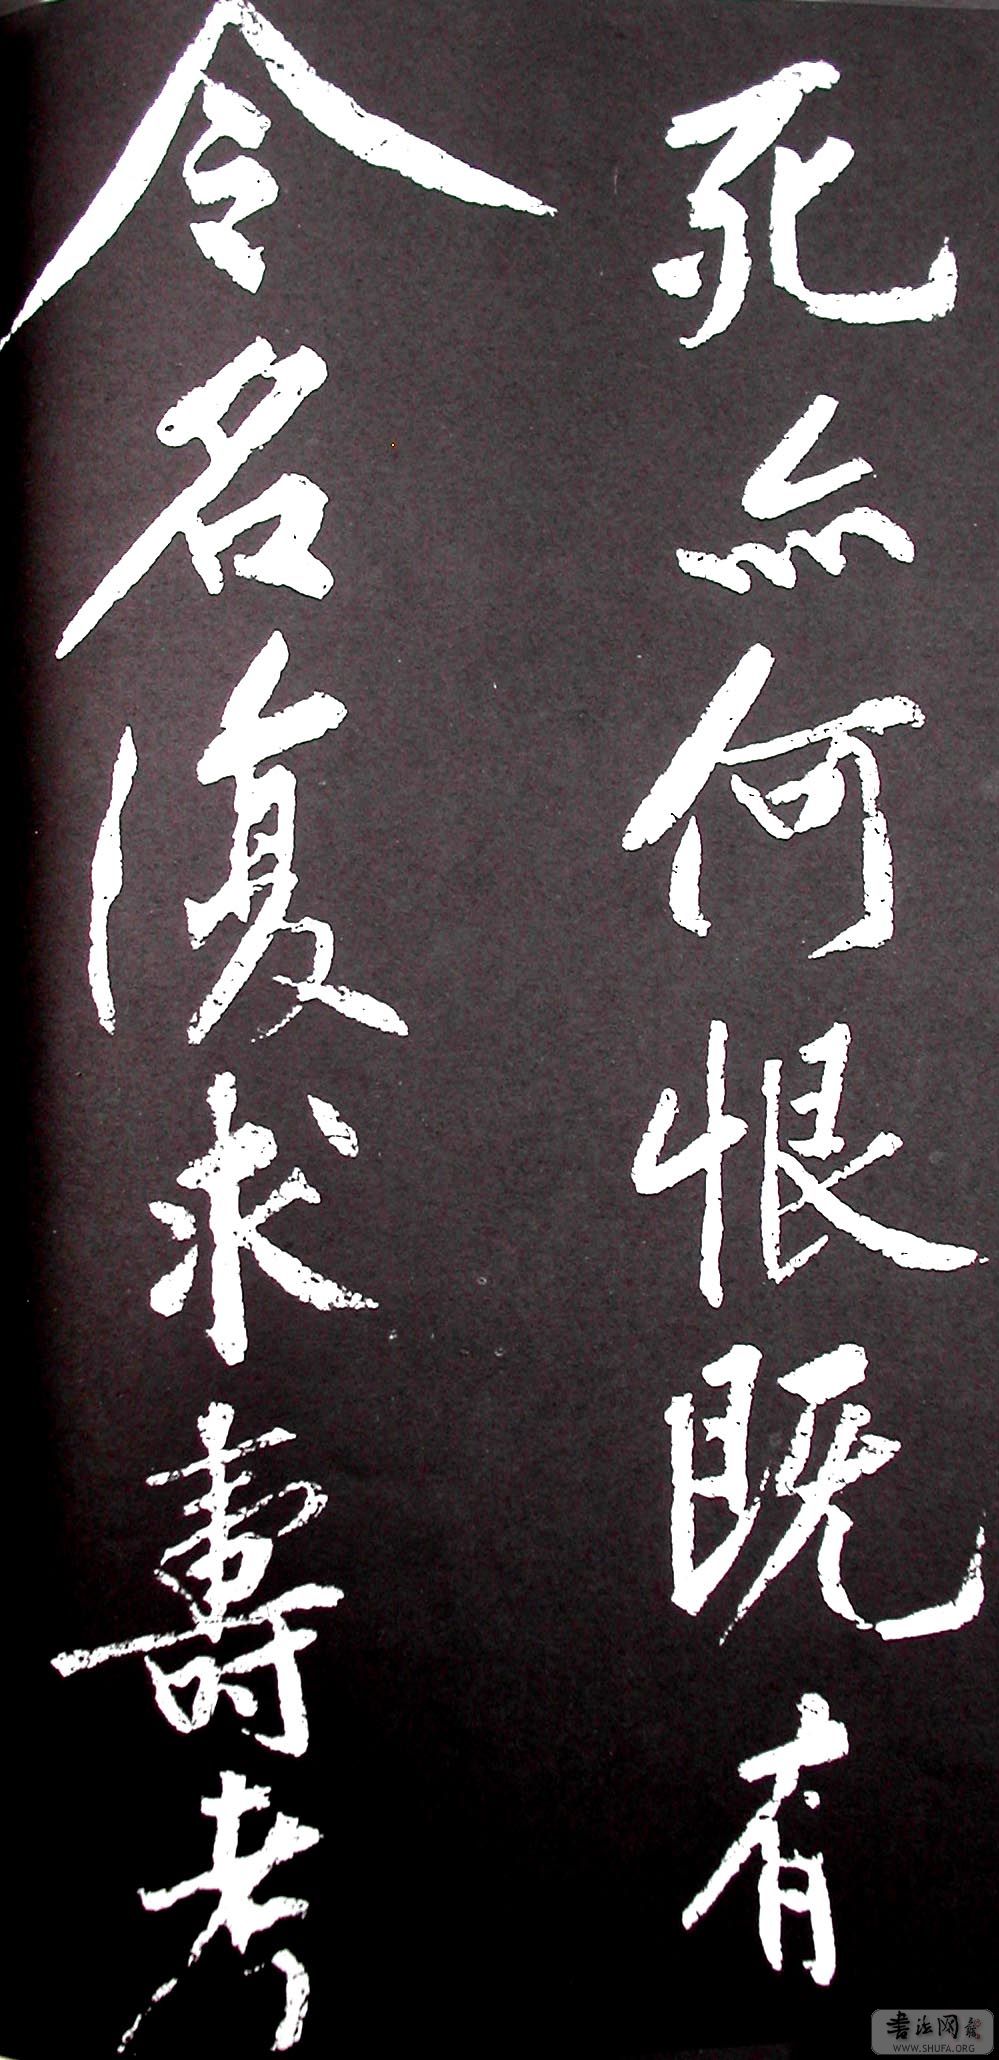 死亦何恨既有
令名復求壽考
书法网
WWW.SHUFA.ORG